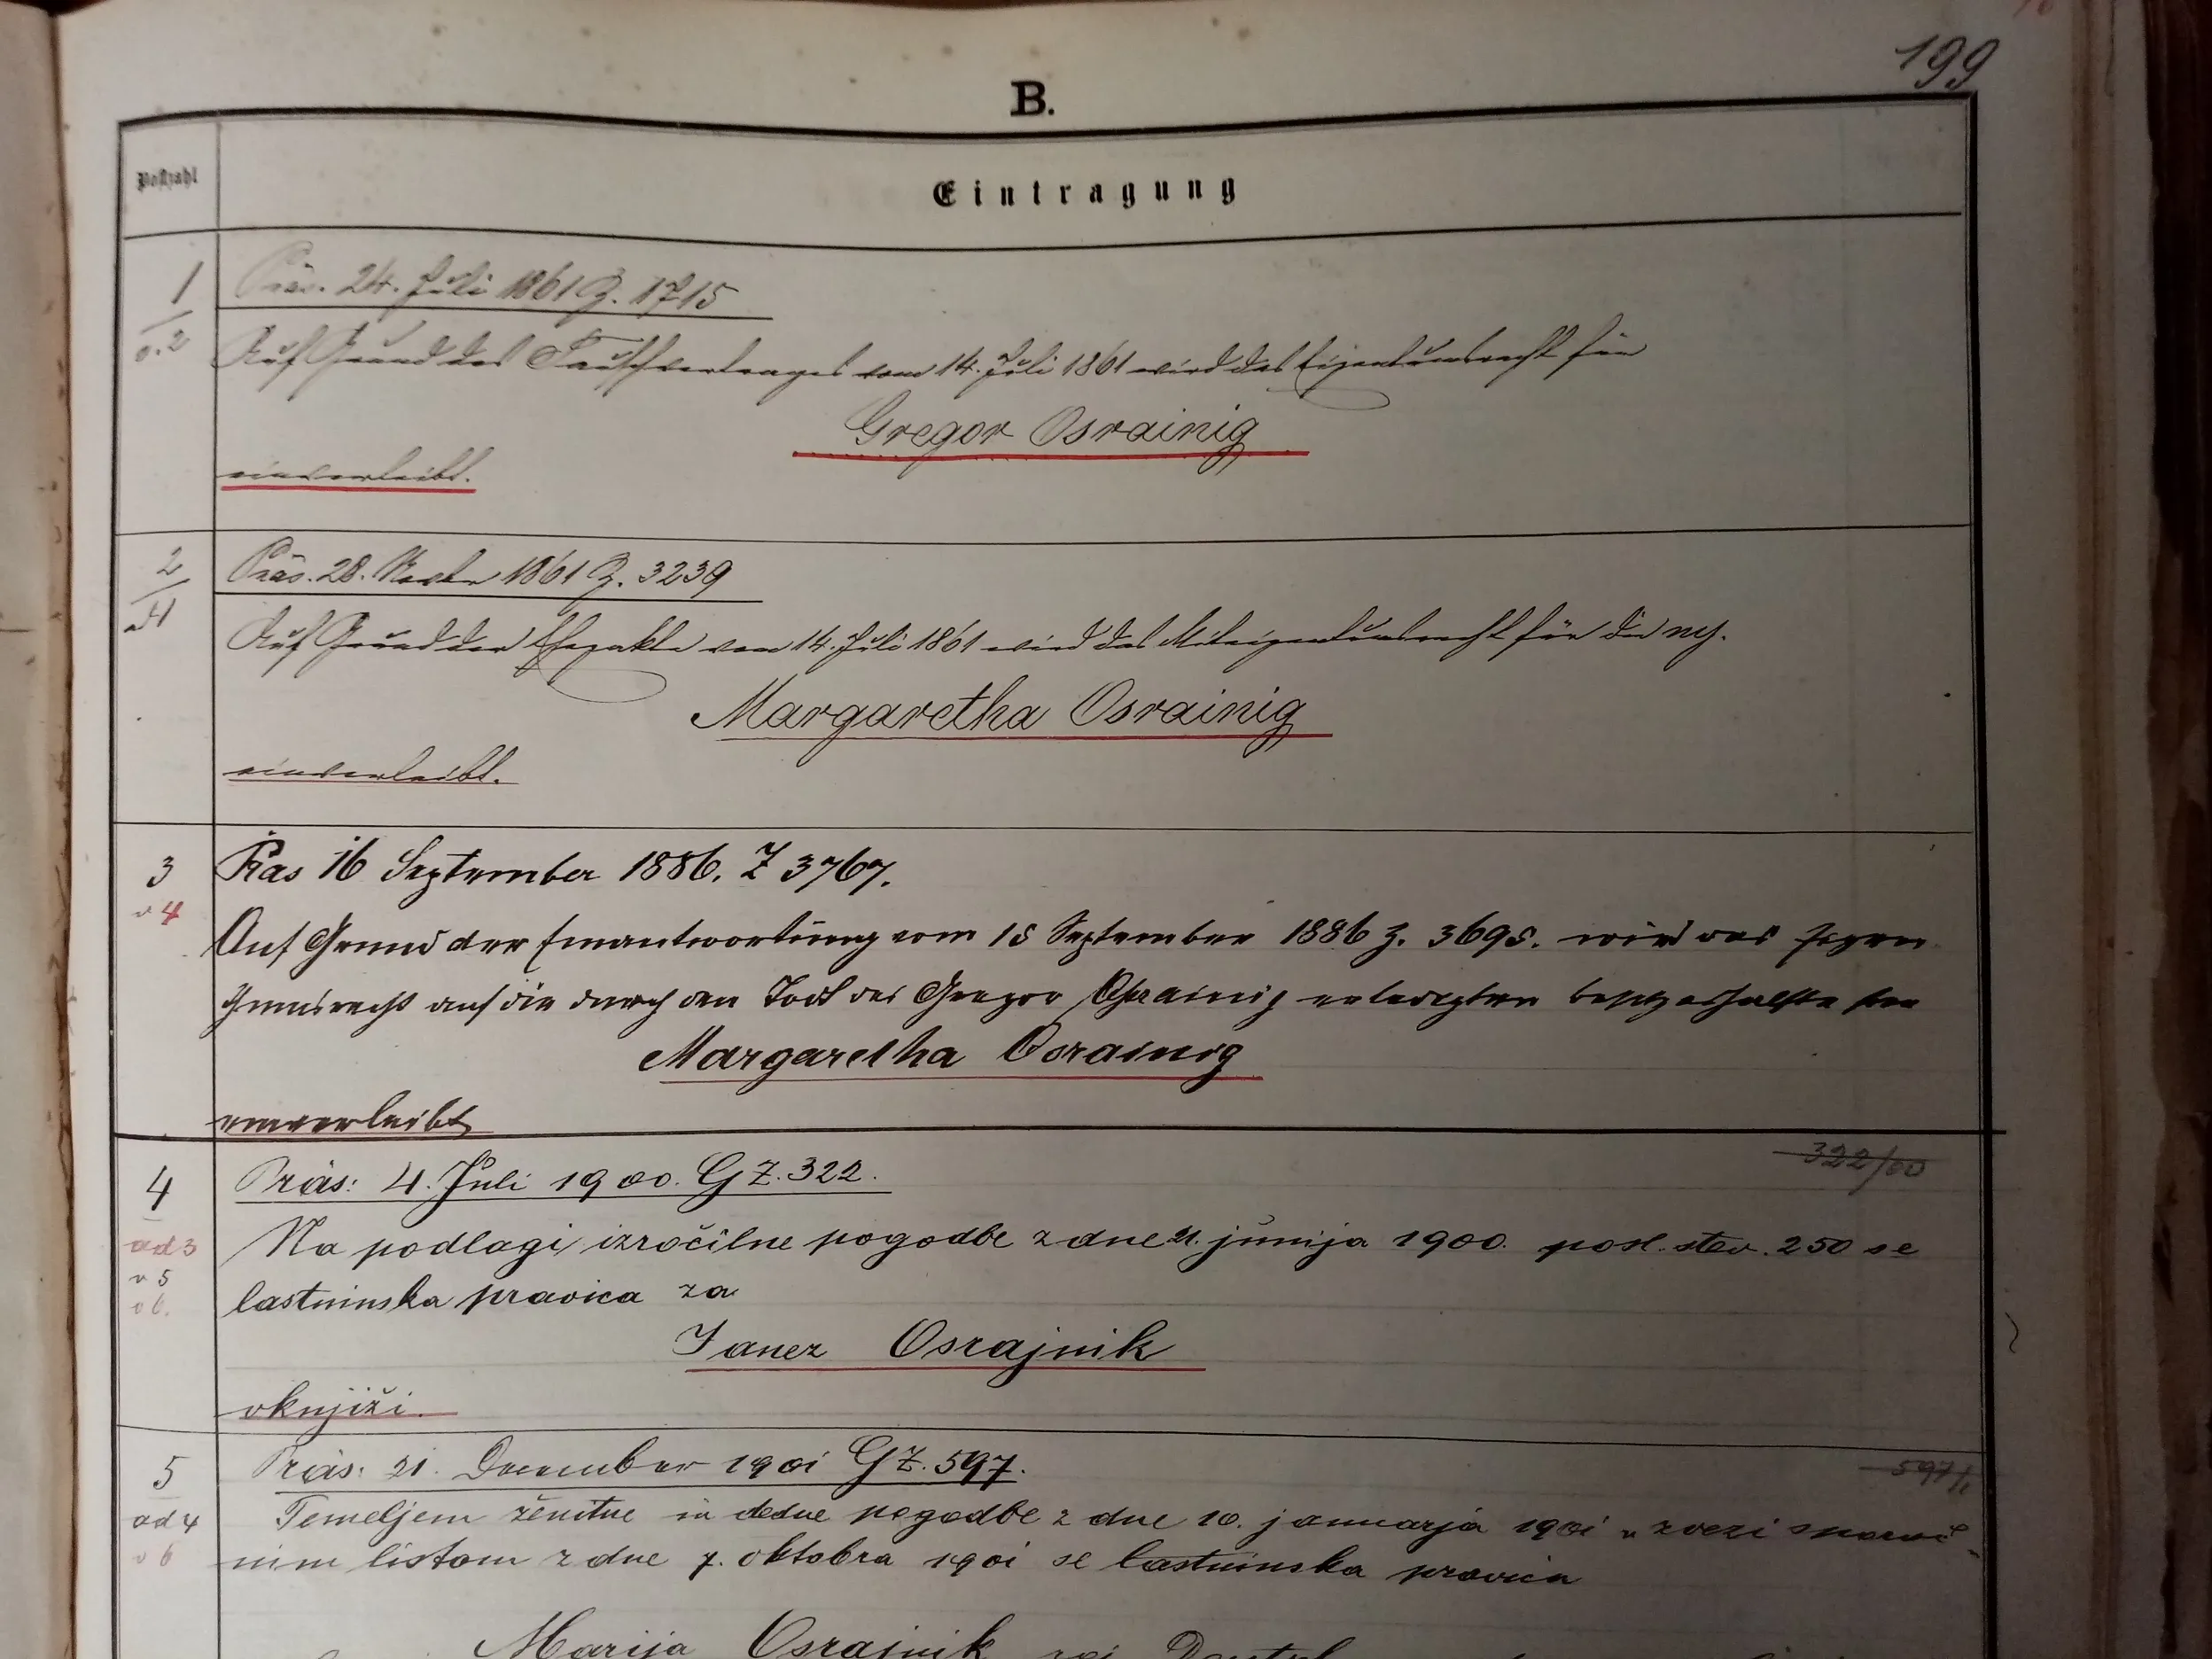 199
B.
Postzahl
Eintragung
1
v. 2
Präs. 24. Juli 1861 Z. 1715
Auf Grund des Tauschvertrages vom 14. Juli 1861 wird das Eigentumsrecht für
Gregor Osrainig
einverleibt.
2
ad 1
Präs. 28. Novbr 1861 Z. 3239
Auf Grund der Ehepakte vom 14. Juli 1861 wird das Miteigentumsrecht für die
Margaretha Osrainig
einverleibt.
3
v 4
Präs 16 September 1886. Z 3767.
Auf Grund der Einantwortung vom 15 September 1886 Z. 3695. wird das Eigen
thumsrecht auf die durch den Tod des Gregor Osrainig erledigten Besitzeshälfte für
Margaretha Osrainig
einverleibt
322/00
4
ad 3
v 5
v 6.
Präs: 4. Juli 1900. GZ. 322.
Na podlagi izročilne pogodbe z dne 21. junija 1900. posl. štev. 250 se
lastninska pravica za
Janez Osrajnik
vknjiži.
597/1
5
ad 4
v 6
Präs: 21. December 1901 GZ. 597.
Temeljem ženitne in dedne pogodbe z dne 10. januarja 1901 v zvezi
nim listom z dne 7. oktobra 1901 se lastninska pravica
Marija Osrajnik roj